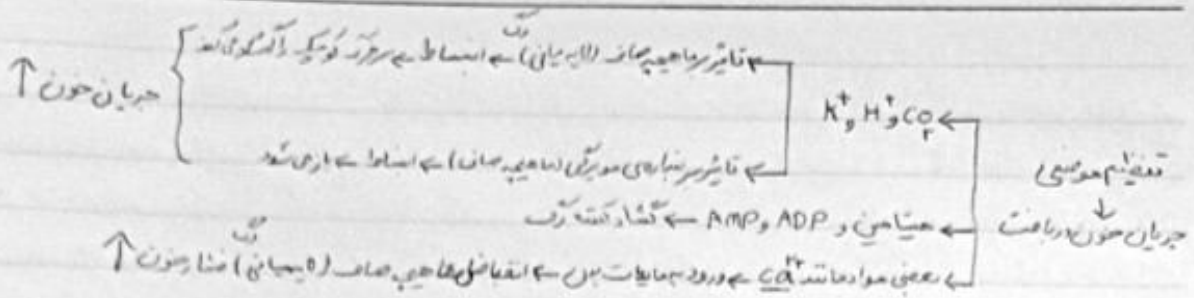 تنظیم موضعی
↓
جریان خون در بافت
← CO₂ و H⁺ و K⁺
← تاثیر بر ماهیچه صاف (لایه میانی) رگ ← انبساط ← سرخرگ کوچک را گشاد می‌کند
← تاثیر بر بنداره‌ی مویرگی (ماهیچه صاف) ← انبساط ← باز می‌شود
جریان خون ↑
← هیستامین و ADP و AMP ← گشاد کننده رگ
← بعضی مواد مانند Ca²⁺ ← ورود به مایعات بدن ← انقباض ماهیچه صاف (لایه میانی) رگ فشار خون ↑